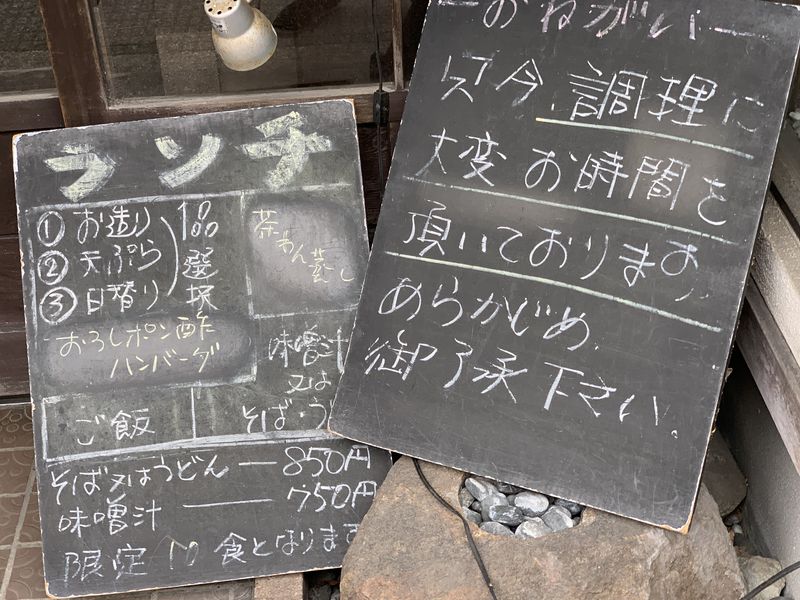 ランチ
① お造り
② 天ぷら
③ 日替り
1品
選択
茶わん蒸し
おろしポン酢
ハンバーグ
味噌汁
又は
そば・う
ご飯
そば又はうどん ― 850円
味噌汁 ― 750円
限定 10 食となります
ーおねがいー
只今、調理に
大変お時間を
頂いております。
あらかじめ、
御了承下さい。